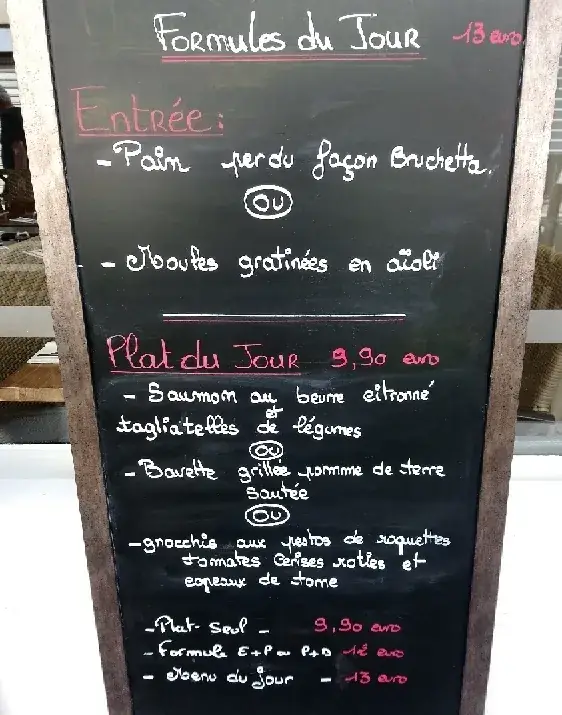 Formules du Jour 13 euro
Entrée:
- Pain perdu façon Bruchetta.
OU
- Moules gratinées en aïoli
Plat du Jour 9,90 euro
- Saumon au beurre citronné
et
tagliatelles de légumes
OU
- Bavette grillée pomme de terre
sautée
OU
- gnocchis aux pestos de roquettes
tomates cerises roties et
copeaux de tome
- Plat seul - 9,90 euro
- Formule E+P ou P+D 12 euro
- Menu du jour - 13 euro